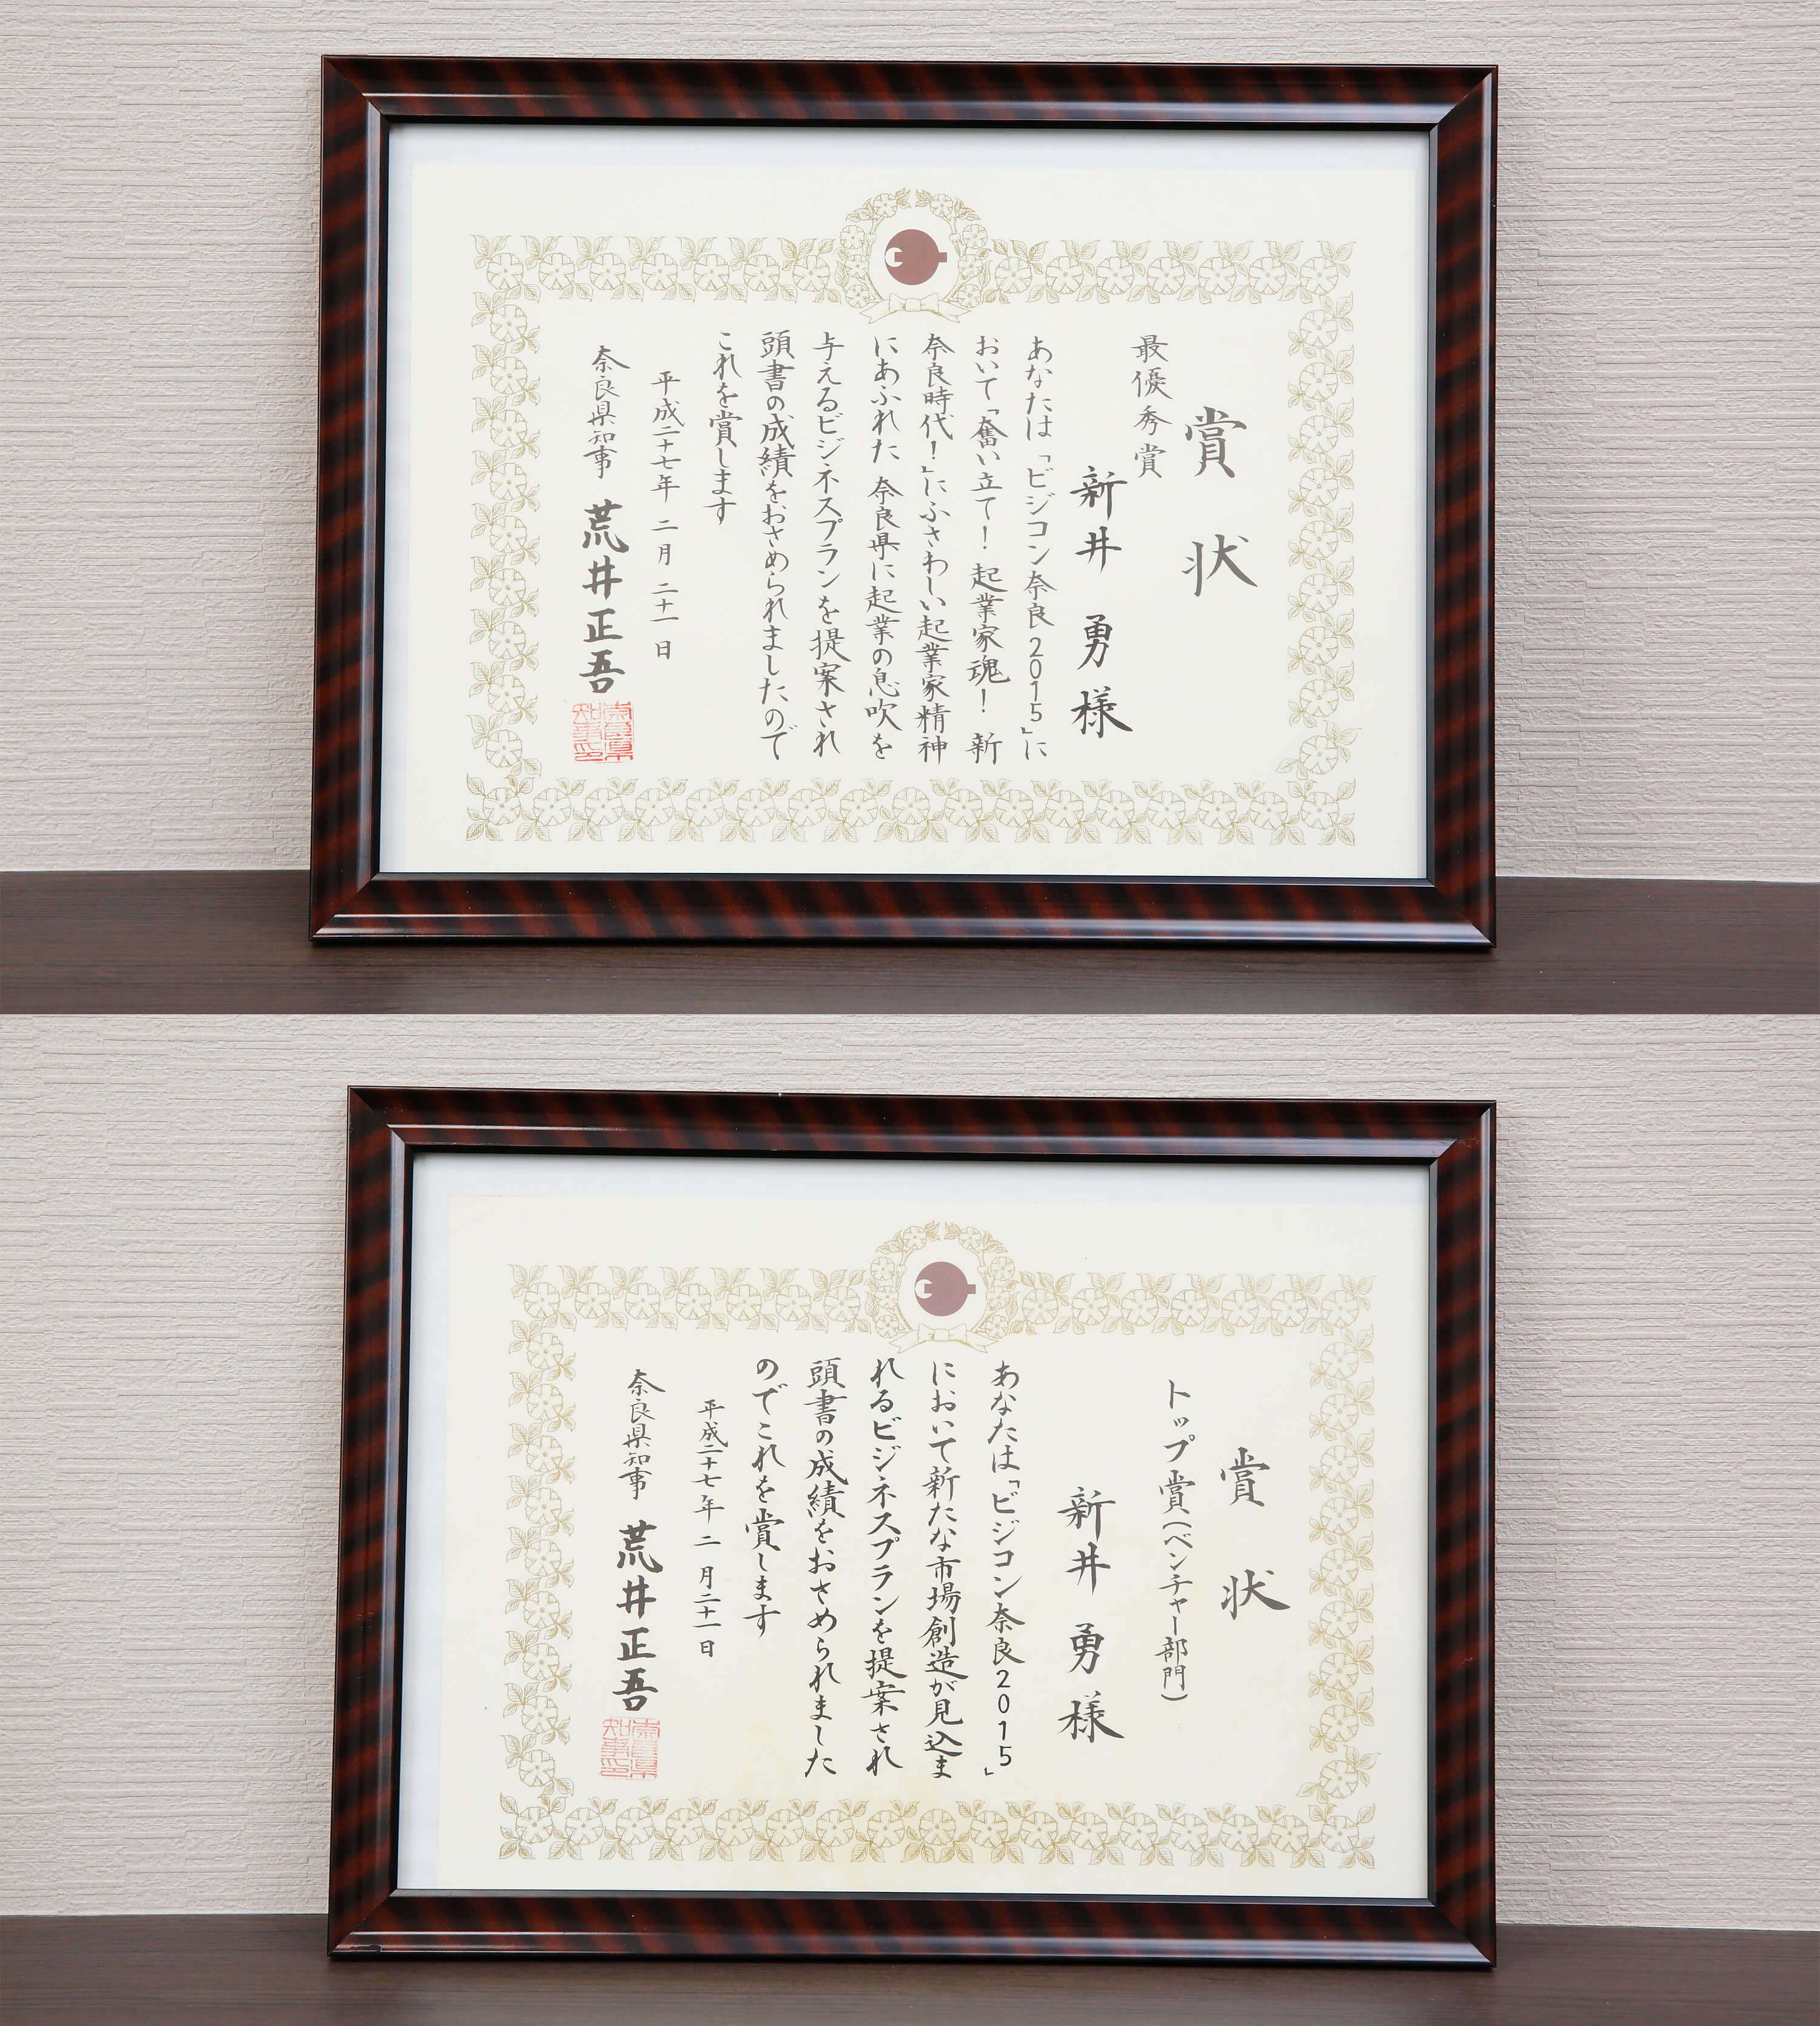 賞状
最優秀賞
新井 勇 様
あなたは「ビジコン奈良2015」に
おいて「奮い立て！起業家魂！新
奈良時代！」にふさわしい起業家精神
にあふれた 奈良県に起業の息吹を
与えるビジネスプランを提案され
頭書の成績をおさめられましたので
これを賞します
平成二十七年 二月 二十一日
奈良県知事 荒井正吾
奈良県知事印
賞状
トップ賞（ベンチャー部門）
新井 勇 様
あなたは「ビジコン奈良2015」
において新たな市場創造が見込ま
れるビジネスプランを提案され
頭書の成績をおさめられました
のでこれを賞します
平成二十七年 二月二十一日
奈良県知事 荒井正吾
奈良県知事印